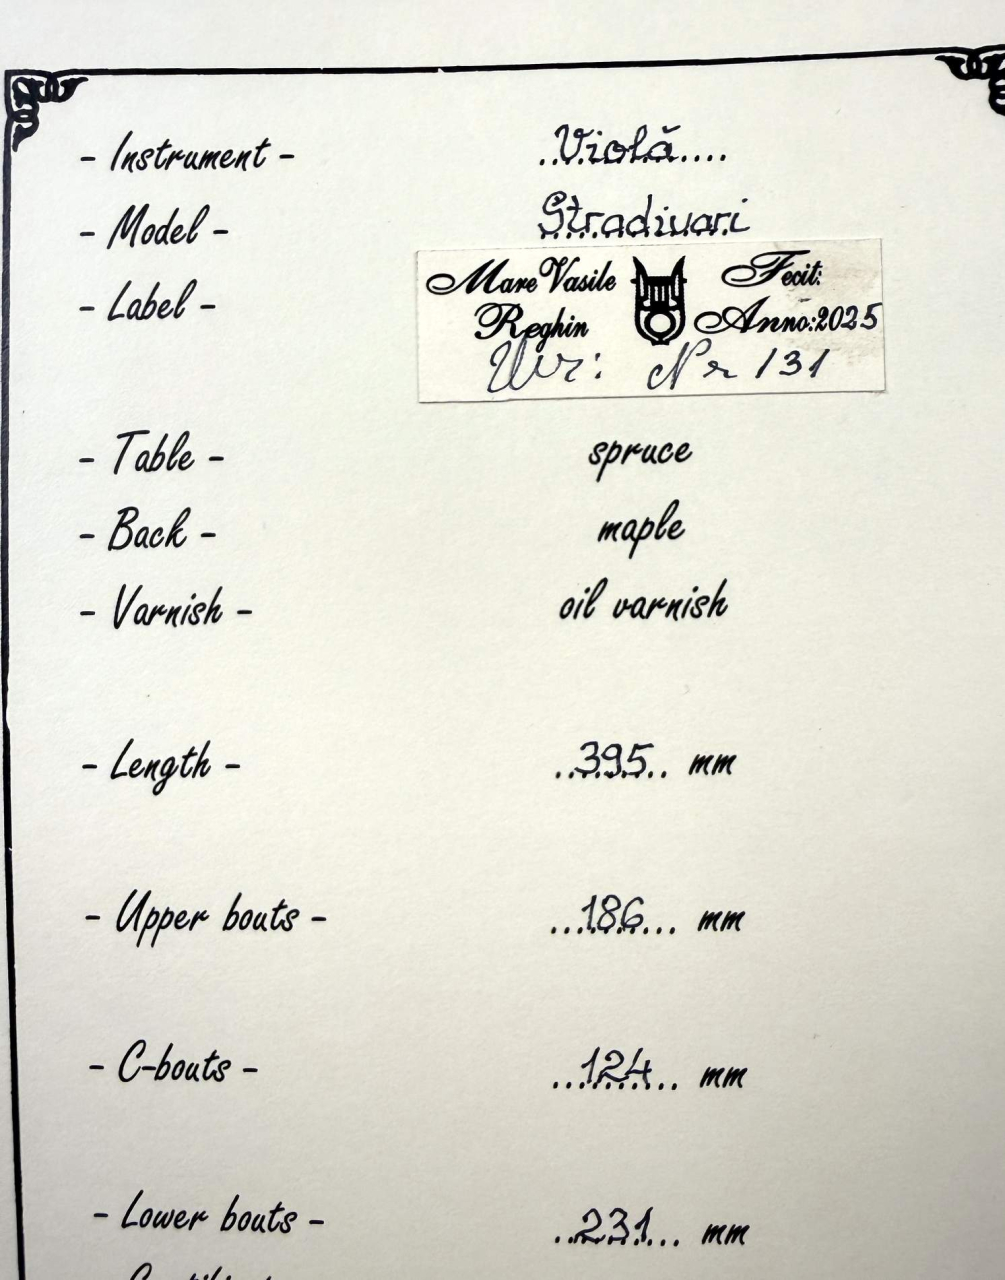 - Instrument - ..Violă....
- Model - Stradivari
- Label -
Mare Vasile Fecit:
Reghin Anno:2025
Nr 131
- Table - spruce
- Back - maple
- Varnish - oil varnish
- Length - ..395.. mm
- Upper bouts - ...186... mm
- C-bouts - ...124... mm
- Lower bouts - ..231... mm